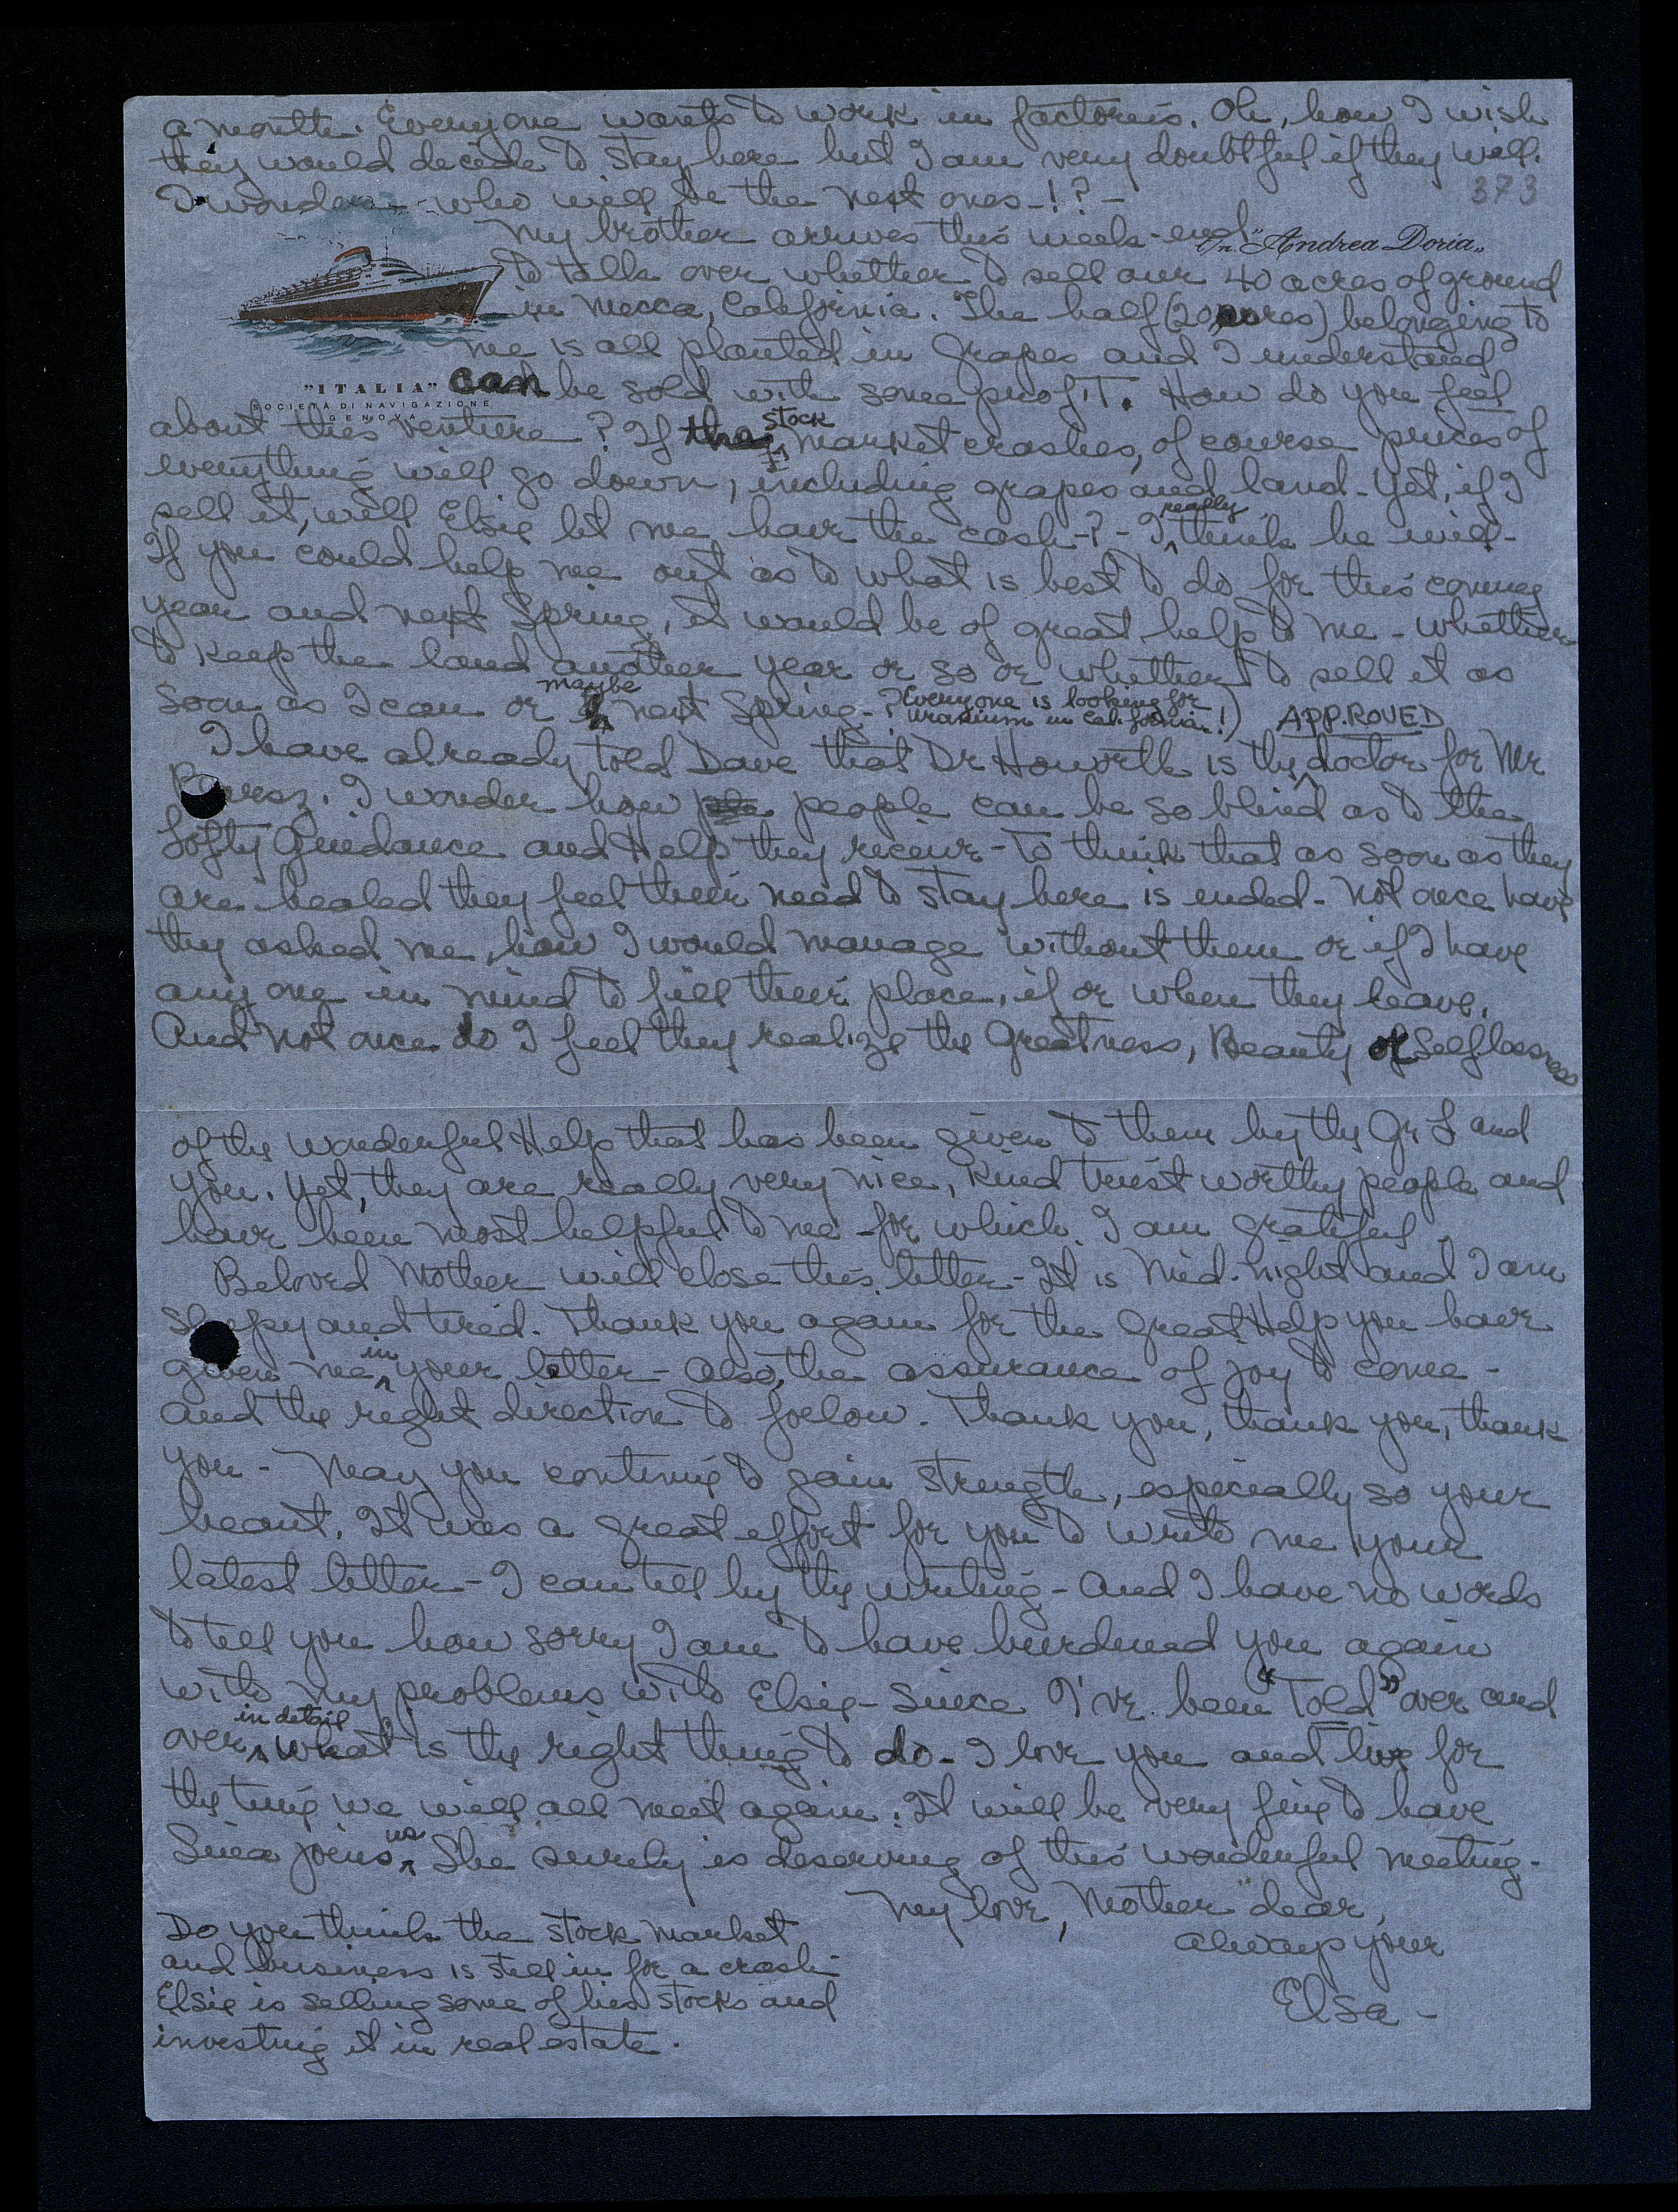 a month. Everyone wants to work in factories. Oh, how I wish
they would decide to stay here but I am very doubtful if they will.
I wonder who will be the next ones-!?-
373
My brother arrives this week-end
T/n "Andrea Doria"
to talk over whether to sell our 40 acres of ground
in Mecca, California. The half (20 acres) belonging to
me is all planted in grapes and I understand
"ITALIA"
SOCIETÀ DI NAVIGAZIONE
GENOVA
can be sold with some profit. How do you feel
about this venture? If the stock market crashes, of course prices of
everything will go down, including grapes and land. Yet, if I
sell it, will Elsie let me have the cash-?- I really think he will-
If you could help me out as to what is best to do for this coming
year and next Spring, it would be of great help to me - whether
to keep the land another year or so or whether to sell it as
soon as I can or maybe next Spring-? Everyone is looking for
uranium in California!)
APPROVED
I have already told Dave that Dr Howorth is the doctor for Mr
I wonder how people can be so blind as to the
Lofty Guidance and Help they receive - To think that as soon as they
are healed they feel their need to stay here is ended - Not once have
they asked me, how I would manage without them or if I have
any one in mind to fill their place, if or when they leave.
And not once do I feel they realize the Greatness, Beauty of Selflessness
of the wonderful Help that has been given to them by the Gr L and
you. Yet, they are really very nice, kind trust worthy people and
have been most helpful to me - for which I am grateful.
Beloved Mother will close this letter - It is Mid-night and I am
sleepy and tired. Thank you again for the Great Help you have
given me in your letter - also, the assurance of joy to come -
and the right direction to follow. Thank you, thank you, thank
you - May you continue to gain strength, especially so your
heart. It was a great effort for you to write me your
latest letter - I can tell by the writing - And I have no words
to tell you how sorry I am to have burdened you again
with my problems with Elsie - Since I've been "Told" over and
over in detail what is the right thing to do - I love you and live for
the time we will all meet again. It will be very fine to have
Sina joins us She surely is deserving of this wonderful meeting.
My love, Mother dear,
always your
Elsa -
Do you think the stock market
and business is still in for a crash-
Elsie is selling some of his stocks and
investing it in real estate.